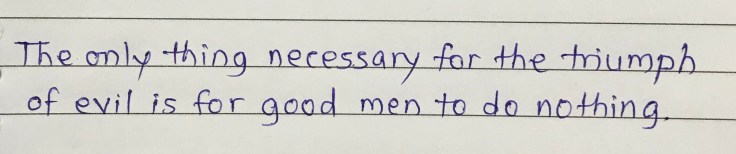 The only thing necessary for the triumph
of evil is for good men to do nothing.